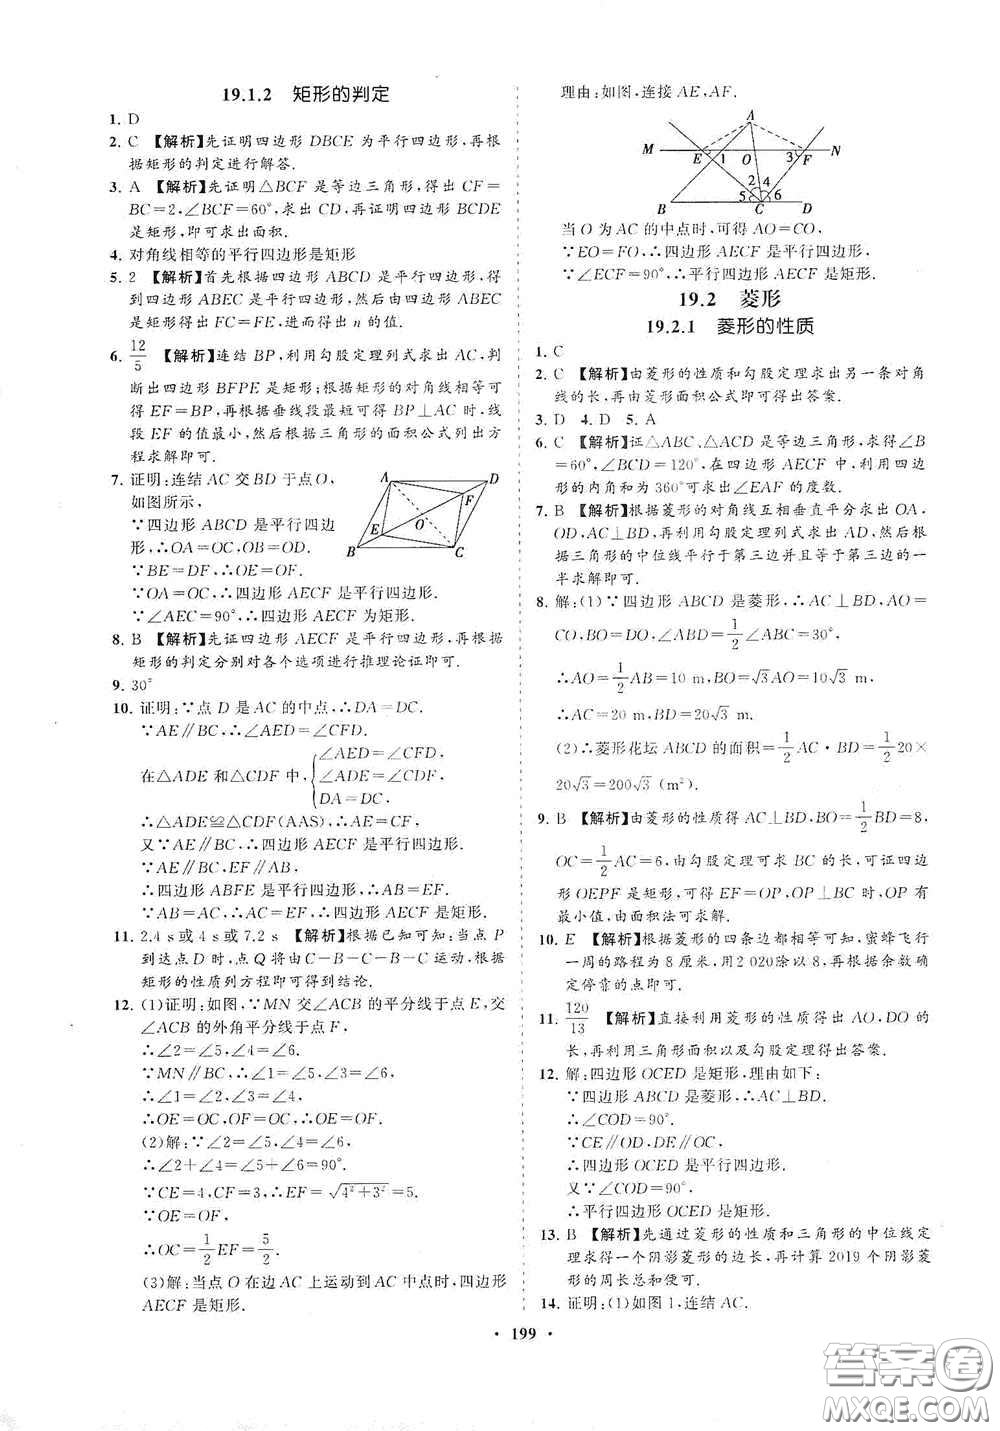 19.1.2 矩形的判定
1. D
2. C 【解析】先证明四边形 DBCE 为平行四边形,再根
据矩形的判定进行解答.
3. A 【解析】先证明△BCF 是等边三角形,得出 CF=
BC=2,∠BCF=60°,求出 CD,再证明四边形 BCDE
是矩形,即可求出面积.
4. 对角线相等的平行四边形是矩形
5. 2 【解析】首先根据四边形 ABCD 是平行四边形,得
到四边形 ABEC 是平行四边形,然后由四边形 ABEC
是矩形得出 FC=FE,进而得出 n 的值.
6. 12/5 【解析】连结 BP,利用勾股定理列式求出 AC,判
断出四边形 BFPE 是矩形;根据矩形的对角线相等可
得 EF=BP,再根据垂线段最短可得 BP⊥AC 时,线
段 EF 的值最小,然后根据三角形的面积公式列出方
程求解即可.
7. 证明:连结 AC 交 BD 于点 O,
如图所示,
∵四边形 ABCD 是平行四边
形,∴OA=OC,OB=OD.
∵BE=DF,∴OE=OF.
∵OA=OC,∴四边形 AECF 是平行四边形.
∵∠AEC=90°,∴四边形 AECF 为矩形.
A D F E O B C
8. B 【解析】先证四边形 AECF 是平行四边形,再根据
矩形的判定分别对各个选项进行推理论证即可.
9. 30°
10. 证明:∵点 D 是 AC 的中点,∴DA=DC.
∵AE∥BC,∴∠AED=∠CFD.
在△ADE 和△CDF 中,{∠AED=∠CFD,
∠ADE=∠CDF,
DA=DC,
∴△ADE≌△CDF(AAS),∴AE=CF.
又∵AE∥BC,∴四边形 AECF 是平行四边形.
∵AE∥BC,EF∥AB,
∴四边形 ABFE 是平行四边形,∴AB=EF.
∵AB=AC,∴AC=EF,∴四边形 AECF 是矩形.
11. 2.4 s或4 s或7.2 s 【解析】根据已知可知:当点 P
到达点 D 时,点 Q 将由 C-B-C-B-C 运动,根据
矩形的性质列方程即可得到结论.
12. (1)证明:如图,∵MN 交∠ACB 的平分线于点 E,交
∠ACB 的外角平分线于点 F,
∴∠2=∠5,∠4=∠6.
∵MN∥BC,∴∠1=∠5,∠3=∠6,
∴∠1=∠2,∠3=∠4,
∴OE=OC,OF=OC,∴OE=OF.
(2)解:∵∠2=∠5,∠4=∠6,
∴∠2+∠4=∠5+∠6=90°.
∵CE=4,CF=3,∴EF=√(4²+3²)=5.
∵OE=OF,
∴OC=1/2EF=5/2.
(3)解:当点 O 在边 AC 上运动到 AC 中点时,四边形
AECF 是矩形.
理由:如图,连接 AE,AF.
A M E 1 O 3 F N 2 4 5 6 B C D
当 O 为 AC 的中点时,可得 AO=CO,
∵EO=FO,∴四边形 AECF 是平行四边形.
∵∠ECF=90°,∴平行四边形 AECF 是矩形.
19.2 菱形
19.2.1 菱形的性质
1. C
2. C 【解析】由菱形的性质和勾股定理求出另一条对角
线的长,再由菱形面积公式即可得出答案.
3. D 4. D 5. A
6. C 【解析】证△ABC、△ACD 是等边三角形,求得∠B
=60°,∠BCD=120°,在四边形 AECF 中,利用四边
形的内角和为 360°可求出∠EAF 的度数.
7. B 【解析】根据菱形的对角线互相垂直平分求出 OA,
OD,AC⊥BD,再利用勾股定理列式求出 AD,然后根
据三角形的中位线平行于第三边并且等于第三边的一
半求解即可.
8. 解:(1)∵四边形 ABCD 是菱形,∴AC⊥BD,AO=
CO,BO=DO,∠ABD=1/2∠ABC=30°,
∴AO=1/2AB=10 m,BO=√3AO=10√3 m.
∴AC=20 m,BD=20√3 m.
(2)∴菱形花坛 ABCD 的面积=1/2AC·BD=1/2 20×
20√3=200√3 (m²).
9. B 【解析】由菱形的性质得 AC⊥BD,BO=1/2BD=8,
OC=1/2AC=6,由勾股定理可求 BC 的长,可证四边
形 OEPF 是矩形,可得 EF=OP,OP⊥BC 时,OP 有
最小值,由面积法可求解.
10. E 【解析】根据菱形的四条边都相等可知,蜜蜂飞行
一周的路程为 8 厘米,用 2 020除以 8,再根据余数确
定停靠的点即可.
11. 120/13 【解析】直接利用菱形的性质得出 AO,DO 的
长,再利用三角形面积以及勾股定理得出答案.
12. 解:四边形 OCED 是矩形,理由如下:
∵四边形 ABCD 是菱形,∴AC⊥BD.
∴∠COD=90°.
∵CE∥OD,DE∥OC,
∴四边形 OCED 是平行四边形.
又∵∠COD=90°,
∴平行四边形 OCED 是矩形.
13. B 【解析】先通过菱形的性质和三角形的中位线定
理求得一个阴影菱形的边长,再计算 2019 个阴影菱
形的周长总和便可.
14. 证明:(1)如图 1,连结 AC.
• 199 •
答案圈
MXQE.COM